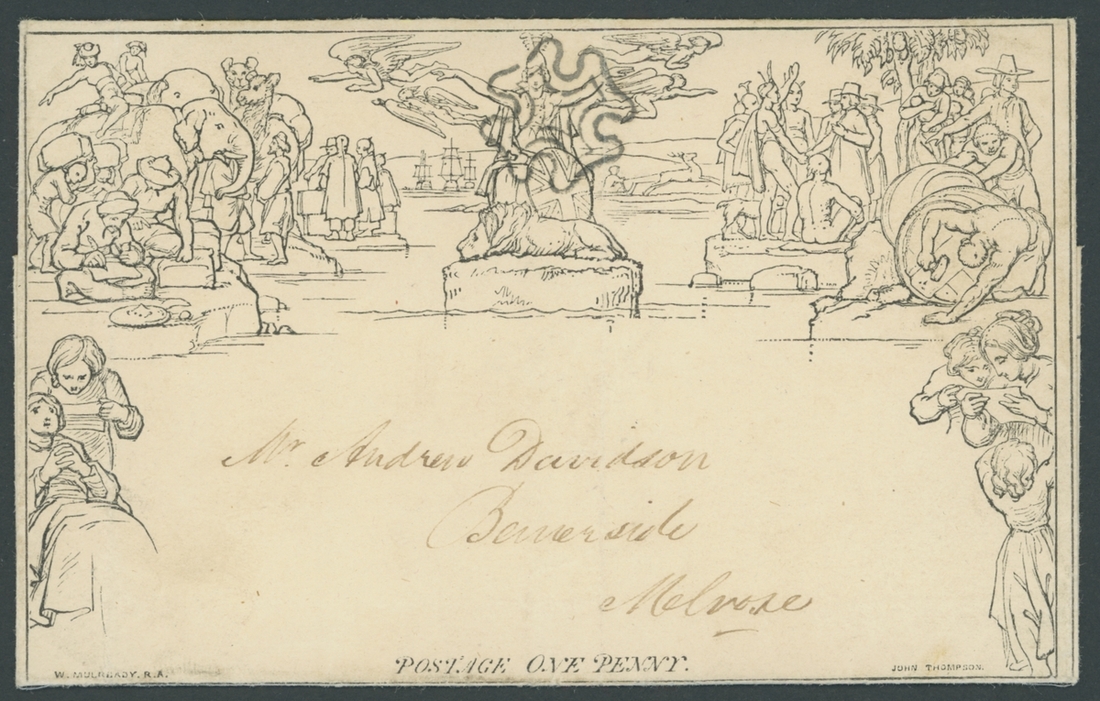 Mr. Andrew Davidson
Bemerside
Melrose
POSTAGE ONE PENNY.
W. MULREADY. R.A.
JOHN THOMPSON.